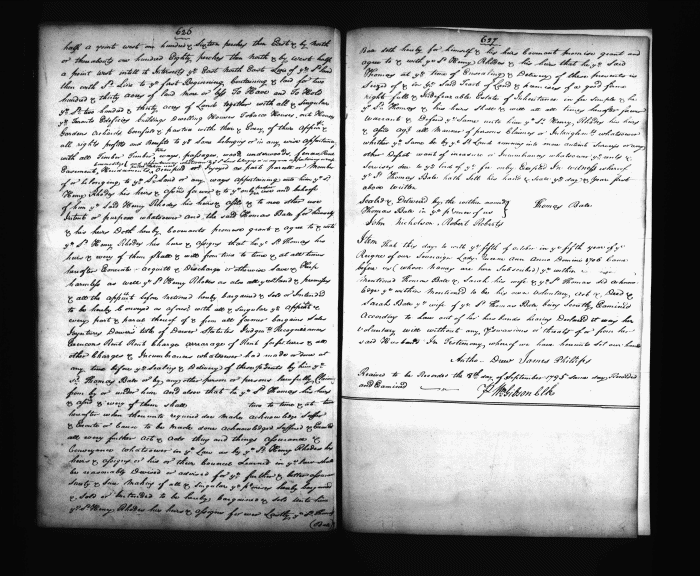 626
half a point west one hundred & sixteen perches then East & by North
or thereabouts one hundred Eighty perches then North & by west half
a point west untill it Intersects ye East North East Line of ye sd Land
then with sd Line to ye first Beginning Containing & laid for two
hundred & thirty acres of land more or less To Have and To Hold
ye sd two hundred & thirty acres of Land together with all & Singular
ye Tenements Edifices buildings Dwelling Houses Tobacco Houses, out Houses
Gardens orchards
all rights profits and Benefits to ye Same belonging or in any wise Appertaining
with all Timber Timber ways, passages, waste underwoods,
Easements,
of or belonging to ye sd Land or in any ways appertaining unto him ye sd
Henry Rhodes his heirs & assigns forever & to ye only use and behoofe
of him ye said Henry Rhodes his heirs & assigns & to no other use
Intent or purpose whatsoever and the said Thomas Bate for himself
& his heirs Doth hereby Covenants promise grant & agree to & with
ye sd Henry Rhodes his heirs & assigns that he ye sd Thomas his
heirs & every of them shall & will from time to time & at all times
hereafter Exonerate acquitt & Discharge or otherwise Save & Keep
harmless as well ye sd Henry Rhodes as also all ye land & premises
& all the appurt before mentioned hereby bargained & sold or Intended
to be hereby
every part & parcel thereof & from all former bargains sales
Joyntures Dowers title of Dower Statutes Judgmts Recognizances
Executions Rent Rent Charge arrearage of Rent forfeitures & all
other Charges & Incumbrances whatsoever had made or done at
any time before ye Sealing & Delivery of these presents by him ye
sd Thomas Bate or by any other person or persons lawfully Claiming
from by or under him and does that he ye sd Thomas his heirs
& assigns & every of them shall time to time & at all times
hereafter when thereunto required doe make acknowledge Suffer
& Execute or Cause to be made done acknowledged Suffered & Executed
all every further act & acts thing and things assurance &
Conveyance whatsoever in ye Law as by ye sd Henry Rhodes his
heirs & assigns or his or their Councel Learned in ye Law shall
be reasonably Devised or advised for ye further & better assurance
surety & Sure Making of all & singular ye premises hereby bargained
& sold or Intended to be hereby bargained & sold unto him
ye sd Henry Rhodes his heirs & assigns for ever Lastly ye sd Thomas
(Bate)
627
Bate doth hereby for himself & his heirs Covenant promise grant and
agree to & with ye sd Henry Rhodes & his heirs that he ye said
Thomas at ye time of Ensealing & Delivery of these presents is
Seized of & in ye said Tract of Land & premises of a good sure
right full & Indefeasable Estate of Inheritance in fee Simple & he
ye sd Thomas & his heirs shall & will at all times hereafter forever
Warrant & Defend ye same unto him ye sd Henry Rhodes his heirs
& assigns agt all Manner of persons Claiming or Intangling whatsoever
whether ye same be by sd Land running into more antient Surveys or any
other Defect want of measure or Incumbrance whatsoever ye rents &
Services due to ye Lord of ye fee only Excepted In witness whereof
ye sd Thomas Bate hath Sett his hand & seale ye day & year first
above written
Sealed & Delivered by the within named
Thomas Bate in ye presence of us
John Nicholson. Robert Roberts
Thomas Bate
Item That this day to witt ye fifth of October in ye fifth year of ye
Reigne of our Sovereign Lady Queen Ann Anno Domini 1706 Came
before us (whose Names are here Subscribed) ye within
mentioned Thomas Bate & Sarah his wife & ye sd Thomas did acknow
ledge ye within Mentioned to be his own Voluntary Act & Deed &
Sarah Bate ye wife of ye sd Thomas being Secretly Examined
According to Law out of her husbands hearing Declared it was her
Voluntary will without any perswasions or threats of or from her
said Husband In Testimony whereof we have hereunto Set our hands
Antho. Drew James Phillips
Received to be Recorded the 8th day of September 1795 same day Recorded
and Examined
Pr Wm Gibson Clk